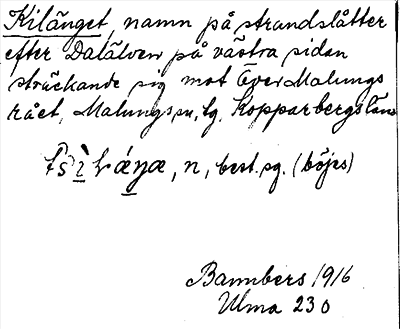 Kilänget, namn på strandslåtter
efter Dalälven på västra sidan
sträckande sig mot Över Malungs
rået, Malungs sn, lg. Kopparbergs län
n, best. sg. (böjes)
Bannbers 1916
Ulma 230